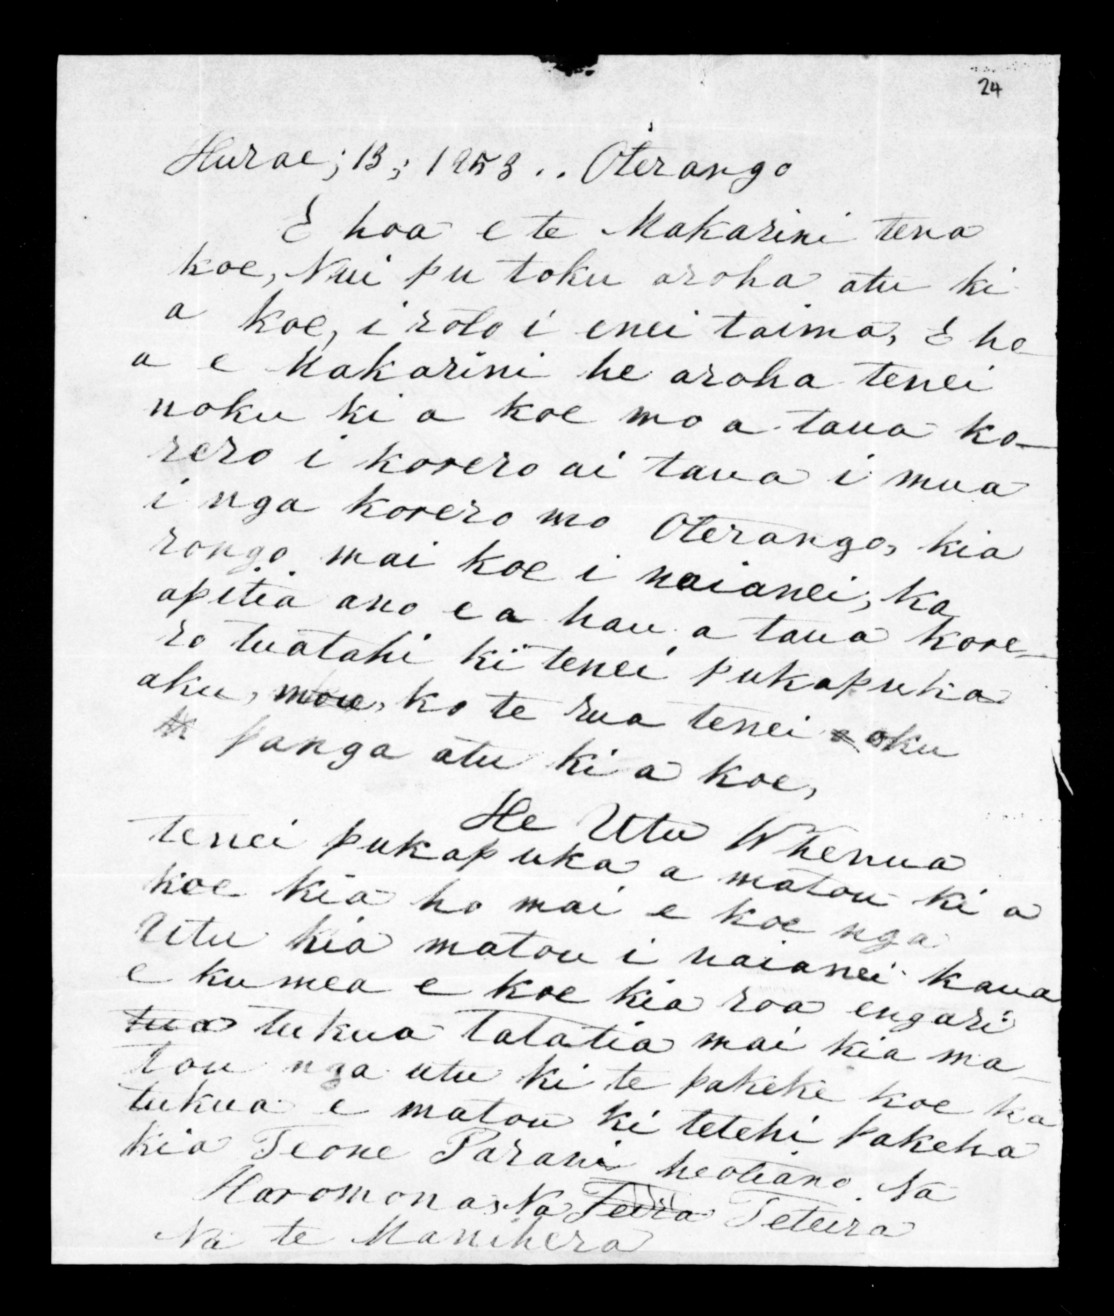 24
Hurae; 13; 1853 .. Oterango
E hoa e te Makarini tena
koe, Nui pu toku aroha atu ki
a koe, i roto i enei taima, E ho-
a e Makarini he aroha tenei
noku ki a koe mo a taua ko-
rero i korero ai taua i mua
i nga korero mo Oterango, kia
rongo mai koe i naianei, ka
apitia ano e a hau a taua kore-
ro tuatahi ki tenei pukapuka
aku, mou, ko te rua tenei oku
panga atu ki a koe,
He Utu Whenua
tenei pukapuka a matou ki a
koe kia ho mai e koe nga
Utu kia matou i naianei kaua
e kumea e koe kia roa engari
tua tukua tatatia mai kia ma-
tou nga utu ki te pakeke koe ka
tukua e matou ki tetehi pakeha
kia Teone Parani heotiano. Na
Haromona, Na Teira Teteira
Na te Manihera